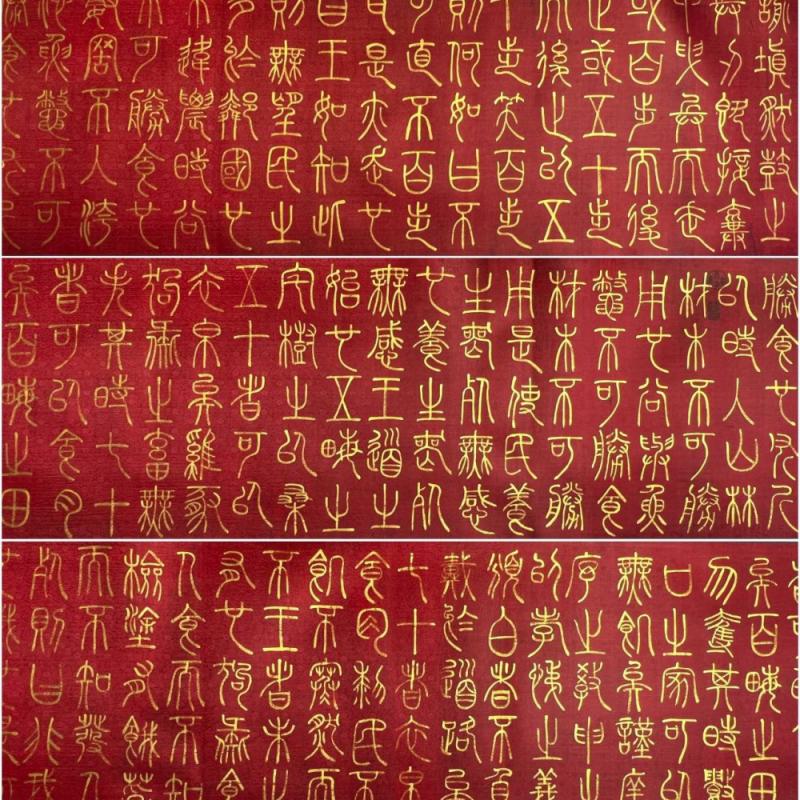 喻填然鼓之
兵刃既接棄
甲曳兵而走
或百步而後
止或五十步
而後止以五
十步笑百步
則何如曰不
可直不百步
耳是亦走也
曰王如知此
則無望民之
多於鄰國也
不違農時谷
不可勝食也
數罟不入洿
池魚鼈不可
勝食也斧斤
勝食也斧斤
以時入山林
材木不可勝
用也谷與魚
鼈不可勝食
材木不可勝
用是使民養
生喪死無憾
也養生喪死
無憾王道之
始也五畝之
宅樹之以桑
五十者可以
衣帛矣雞豚
狗彘之畜無
失其時七十
者可以食肉
矣百畝之田
矣百畝之田
勿奪其時數
口之家可以
無飢矣謹庠
序之教申之
以孝悌之義
頒白者不負
戴於道路矣
七十者衣帛
食肉黎民不
飢不寒然而
不王者未之
有也狗彘食
人食而不知
檢塗有餓莩
而不知發人
死則曰非我